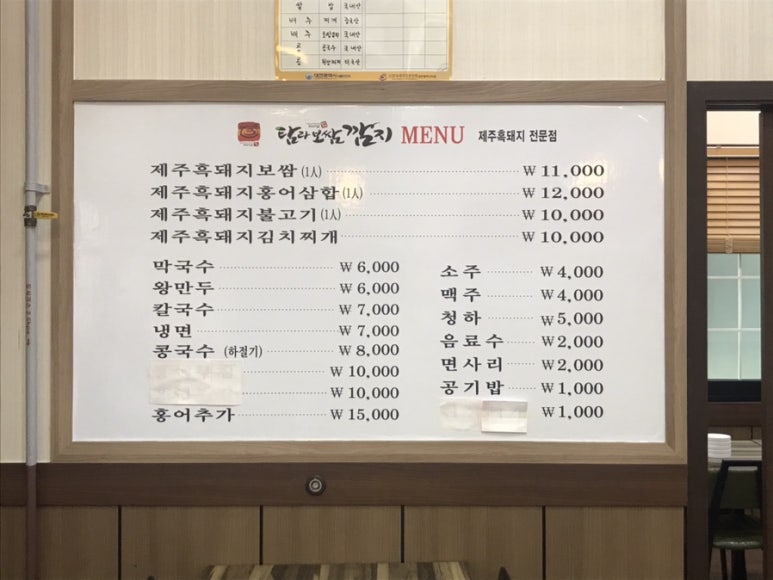 쌀 밥 국내산
배추 찌개 중국산
콩 콩국수 국내산
탐라보쌈깜지 MENU 제주흑돼지 전문점
제주흑돼지보쌈(1人) ₩ 11,000
제주흑돼지홍어삼합(1人) ₩ 12,000
제주흑돼지불고기(1人) ₩ 10,000
제주흑돼지김치찌개 ₩ 10,000
막국수 ₩ 6,000
왕만두 ₩ 6,000
칼국수 ₩ 7,000
냉면 ₩ 7,000
콩국수 (하절기) ₩ 8,000
₩ 10,000
₩ 10,000
홍어추가 ₩ 15,000
소주 ₩4,000
맥주 ₩4,000
청하 ₩5,000
음료수 ₩2,000
면사리 ₩2,000
공기밥 ₩1,000
₩1,000